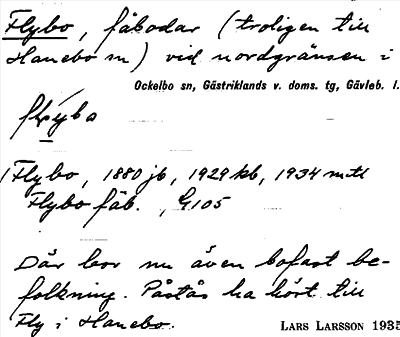 Flybo, fäbodar (troligen till
Hanebo sn) vid nordgränsen i
Ockelbo sn, Gästriklands v. doms. tg, Gävleb. l.
flýbo
Flybo, 1880 jb, 1929 kb, 1934 mtl
Flybo fäb., G105
Där bor nu även bofast be-
folkning. Påstås ha hört till
Fly i Hanebo.
LARS LARSSON 1935